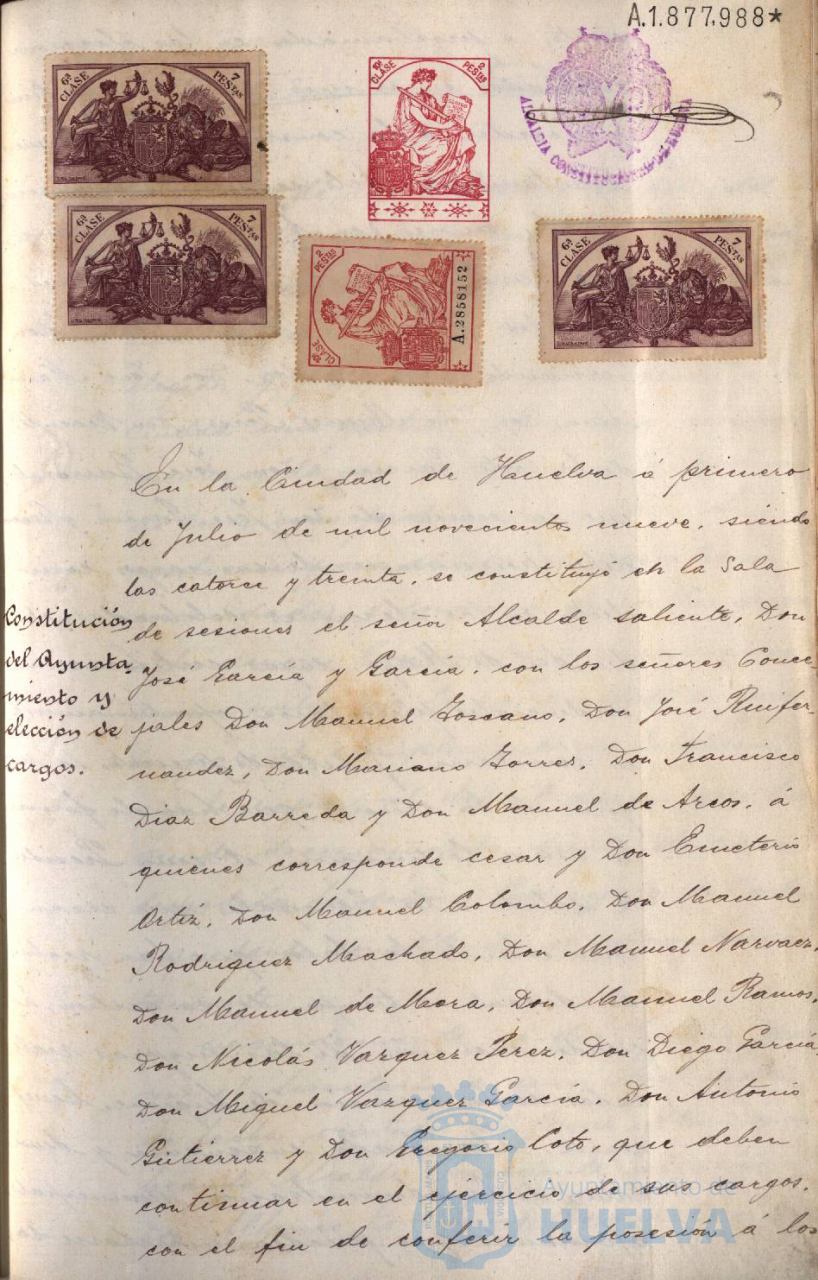 A.1.877.988*
6ª CLASE 7 PESTAS
10ª CLASE 2 PESTAS
ALCALDIA CONSTITUCIONAL DE HUELVA
6ª CLASE 7 PESTAS
10ª CLASE 2 PESTAS
A.2858152
6ª CLASE 7 PESTAS
Constitución
del Ayunta-
miento y
elección de
cargos.
En la Ciudad de Huelva á primero
de Julio de mil novecientos nueve, siendo
las catorce y treinta, se constituyó en la Sala
de sesiones el señor Alcalde saliente, Don
José García y García, con los señores Conce-
jales Don Manuel Toscano, Don José Ruifer-
nandez, Don Mariano Torres, Don Francisco
Diaz Barreda y Don Manuel de Arcos, á
quienes corresponde cesar y Don Emeterio
Ortiz, Don Manuel Colombo, Don Manuel
Rodriguez Machado, Don Manuel Narvaez,
Don Manuel de Mora, Don Manuel Ramos,
Don Nicolás Vazquez Perez, Don Diego García,
Don Miguel Vazquez García, Don Antonio
Gutiérrez y Don Gregorio Coto, que deben
continuar en el ejercicio de sus cargos,
con el fin de conferir la posesión á los
Ayuntamiento de
HUELVA